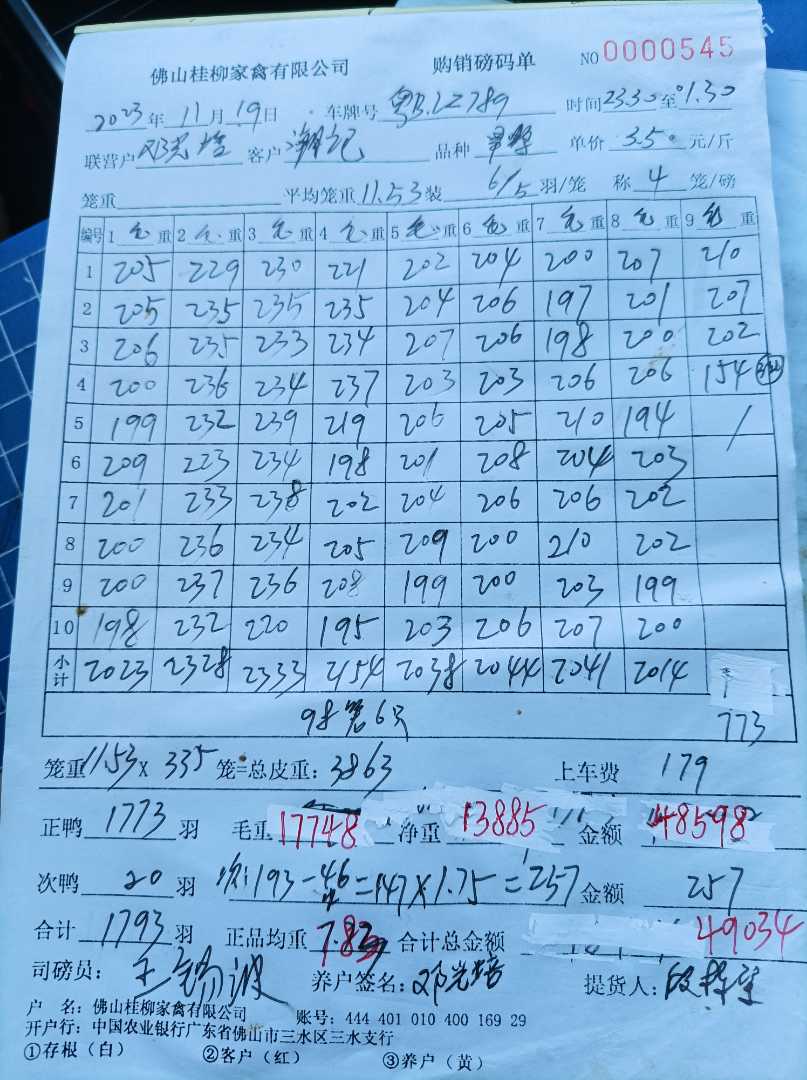 佛山桂柳家禽有限公司 购销磅码单 NO 0000545
2023年11月19日 车牌号粤B.LZ789 时间23.30至01.30
联营户邓光培 客户 品种 单价3.50元/斤
笼重 平均笼重11.53装6/5羽/笼 称4笼/磅
编号 1毛重 2毛重 3毛重 4毛重 5毛重 6毛重 7毛重 8毛重 9毛重
1 205 229 230 221 202 204 200 207 210
2 205 235 235 235 204 206 197 201 207
3 206 235 233 234 207 206 198 200 202
4 200 236 234 237 203 203 206 206 154
5 199 232 239 219 206 205 210 194 /
6 209 223 234 198 201 208 204 203
7 201 233 238 202 204 206 206 202
8 200 236 234 205 209 200 210 202
9 200 237 236 208 199 200 203 199
10 198 232 220 195 203 206 207 200
小计 2023 2328 2333 2154 2038 2044 2041 2014 773
98笼6只
笼重11.53X335笼=总皮重:3863 上车费179
正鸭1773羽 毛重17748 净重13885 金额48598
次鸭20羽 次:193-46=147×1.75=257 金额257
合计1793羽 正品均重7.83 合计总金额49034
司磅员:王锡波 养户签名:邓光培 提货人:
户 名:佛山桂柳家禽有限公司 账号:444 401 010 400 169 29
开户行:中国农业银行广东省佛山市三水区三水支行
①存根(白) ②客户(红) ③养户(黄)